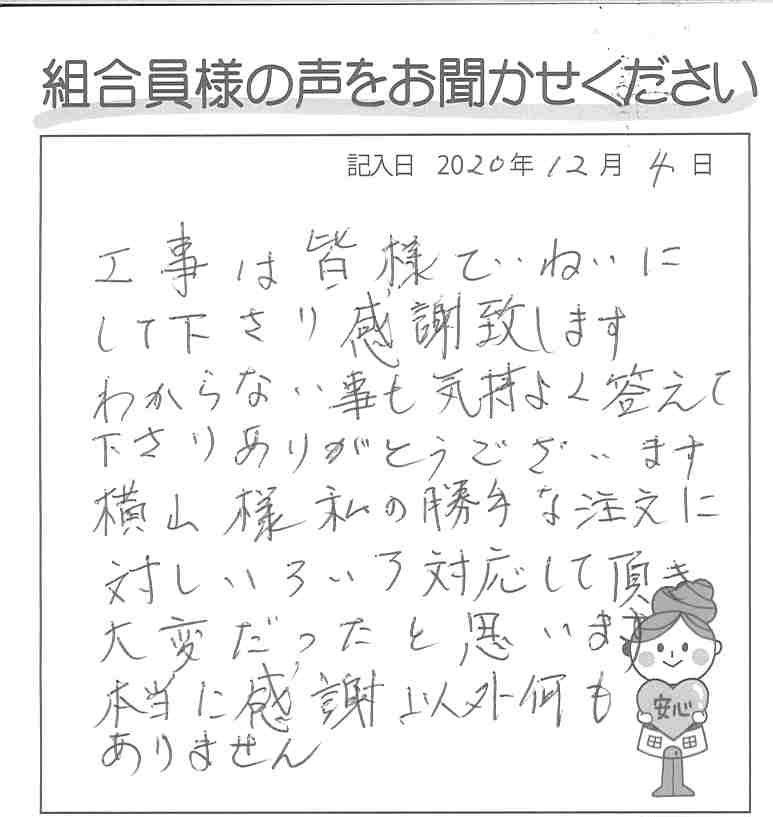 組合員様の声をお聞かせください
記入日 2020年12月4日
工事は皆様ていねいに
して下さり感謝致します
わからない事も気持よく答えて
下さりありがとうございます
横山様私の勝手な注文に
対しいろいろ対応して頂き
大変だったと思います
本当に感謝以外何も
ありません
安心